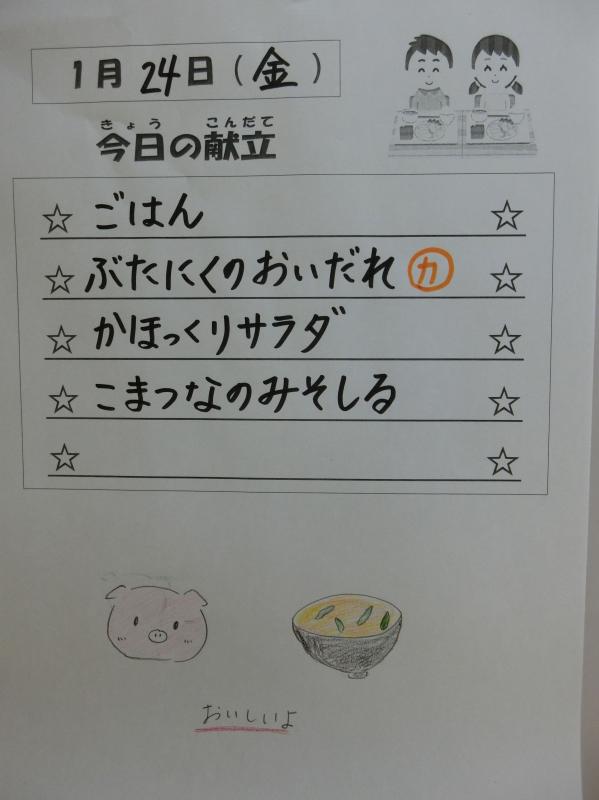 1月24日(金)
きょう こんだて
今日の献立
☆ ごはん ☆
☆ ぶたにくのおいだれ カ ☆
☆ かほっくりサラダ ☆
☆ こまつなのみそしる ☆
☆ ☆
おいしいよ